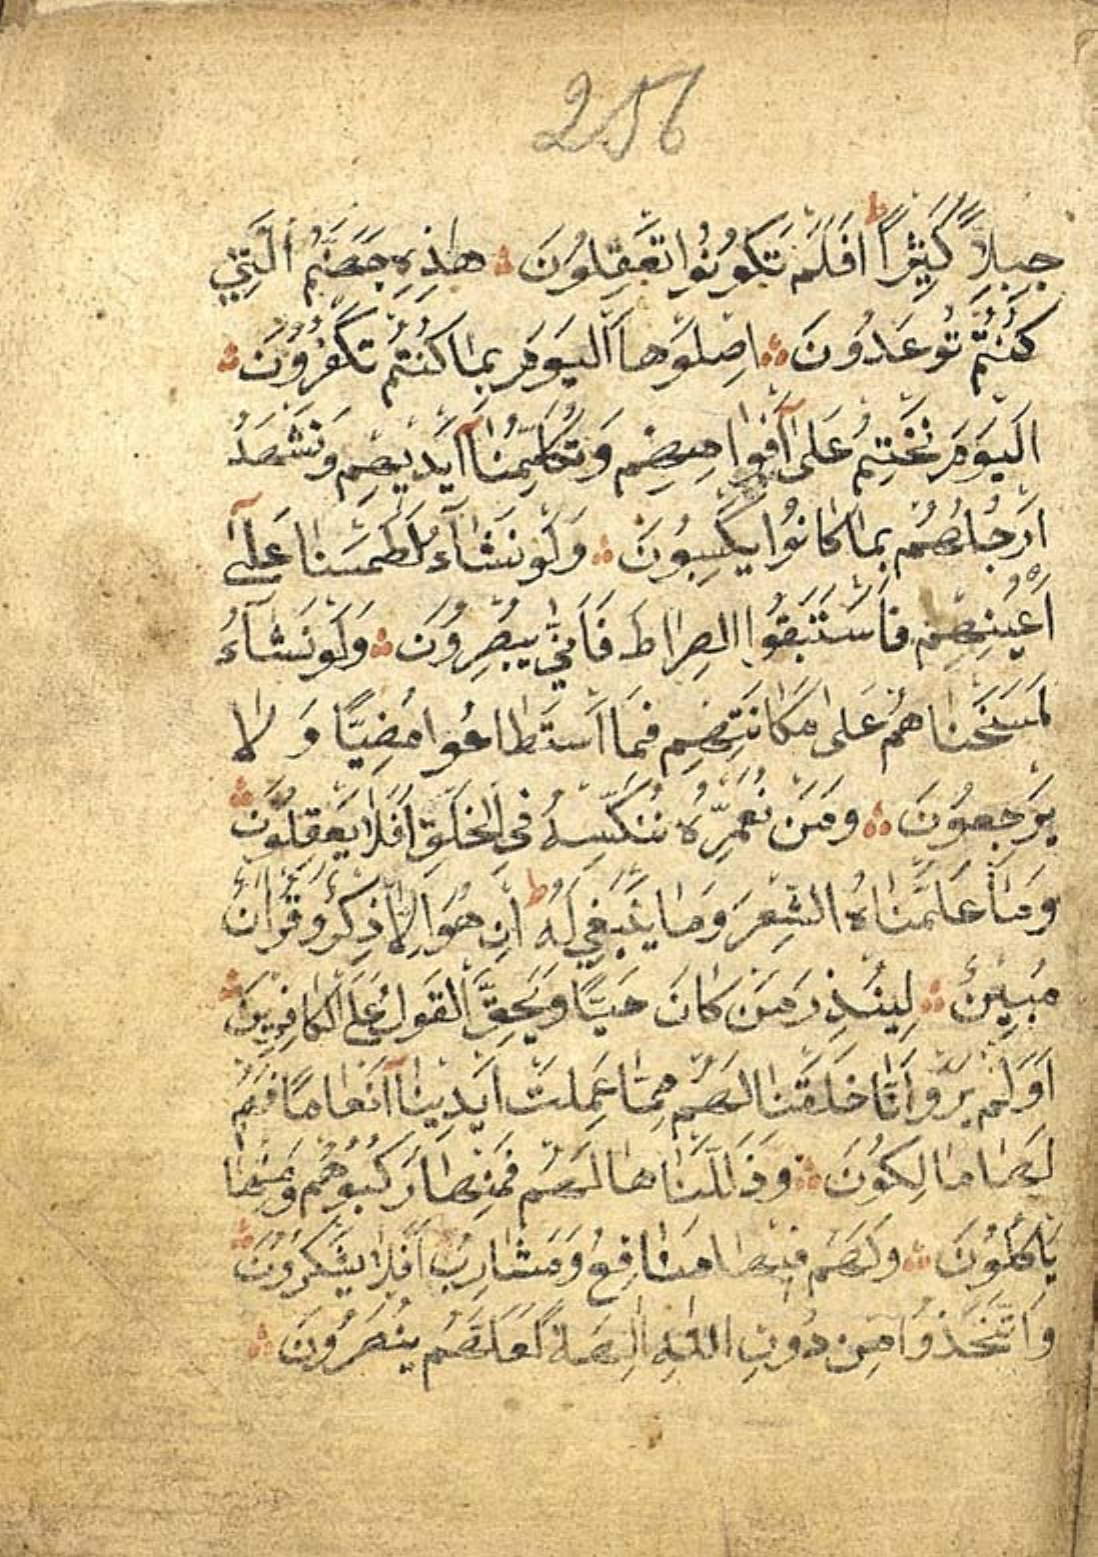 256
جِبِلًّا كَثِيرًا ط اَفَلَمْ تَكُونُوا تَعْقِلُونَ هٰذِهِ جَهَنَّمُ الَّتِي
كُنْتُمْ تُوعَدُونَ اِصْلَوْهَا الْيَوْمَ بِمَا كُنْتُمْ تَكْفُرُونَ
اَلْيَوْمَ نَخْتِمُ عَلٰى اَفْوَاهِهِمْ وَتُكَلِّمُنَا اَيْدِيهِمْ وَتَشْهَدُ
اَرْجُلُهُمْ بِمَا كَانُوا يَكْسِبُونَ وَلَوْ نَشَآءُ لَطَمَسْنَا عَلٰٓى
اَعْيُنِهِمْ فَاسْتَبَقُوا الصِّرَاطَ فَاَنّٰى يُبْصِرُونَ وَلَوْ نَشَآءُ
لَمَسَخْنَاهُمْ عَلٰى مَكَانَتِهِمْ فَمَا اسْتَطَاعُوا مُضِيًّا وَلَا
يَرْجِعُونَ وَمَنْ نُعَمِّرْهُ نُنَكِّسْهُ فِي الْخَلْقِ اَفَلَا يَعْقِلُونَ
وَمَا عَلَّمْنَاهُ الشِّعْرَ وَمَا يَنْبَغِي لَهُ ط اِنْ هُوَ اِلَّا ذِكْرٌ وَقُرْاٰنٌ
مُبِينٌ لِيُنْذِرَ مَنْ كَانَ حَيًّا وَيَحِقَّ الْقَوْلُ عَلَى الْكَافِرِينَ
اَوَلَمْ يَرَوْا اَنَّا خَلَقْنَا لَهُمْ مِمَّا عَمِلَتْ اَيْدِينَا اَنْعَامًا فَهُمْ
لَهَا مَالِكُونَ وَذَلَّلْنَاهَا لَهُمْ فَمِنْهَا رَكُوبُهُمْ وَمِنْهَا
يَاْكُلُونَ وَلَهُمْ فِيهَا مَنَافِعُ وَمَشَارِبُ اَفَلَا يَشْكُرُونَ
وَاتَّخَذُوا مِنْ دُونِ اللّٰهِ اٰلِهَةً لَعَلَّهُمْ يُنْصَرُونَ